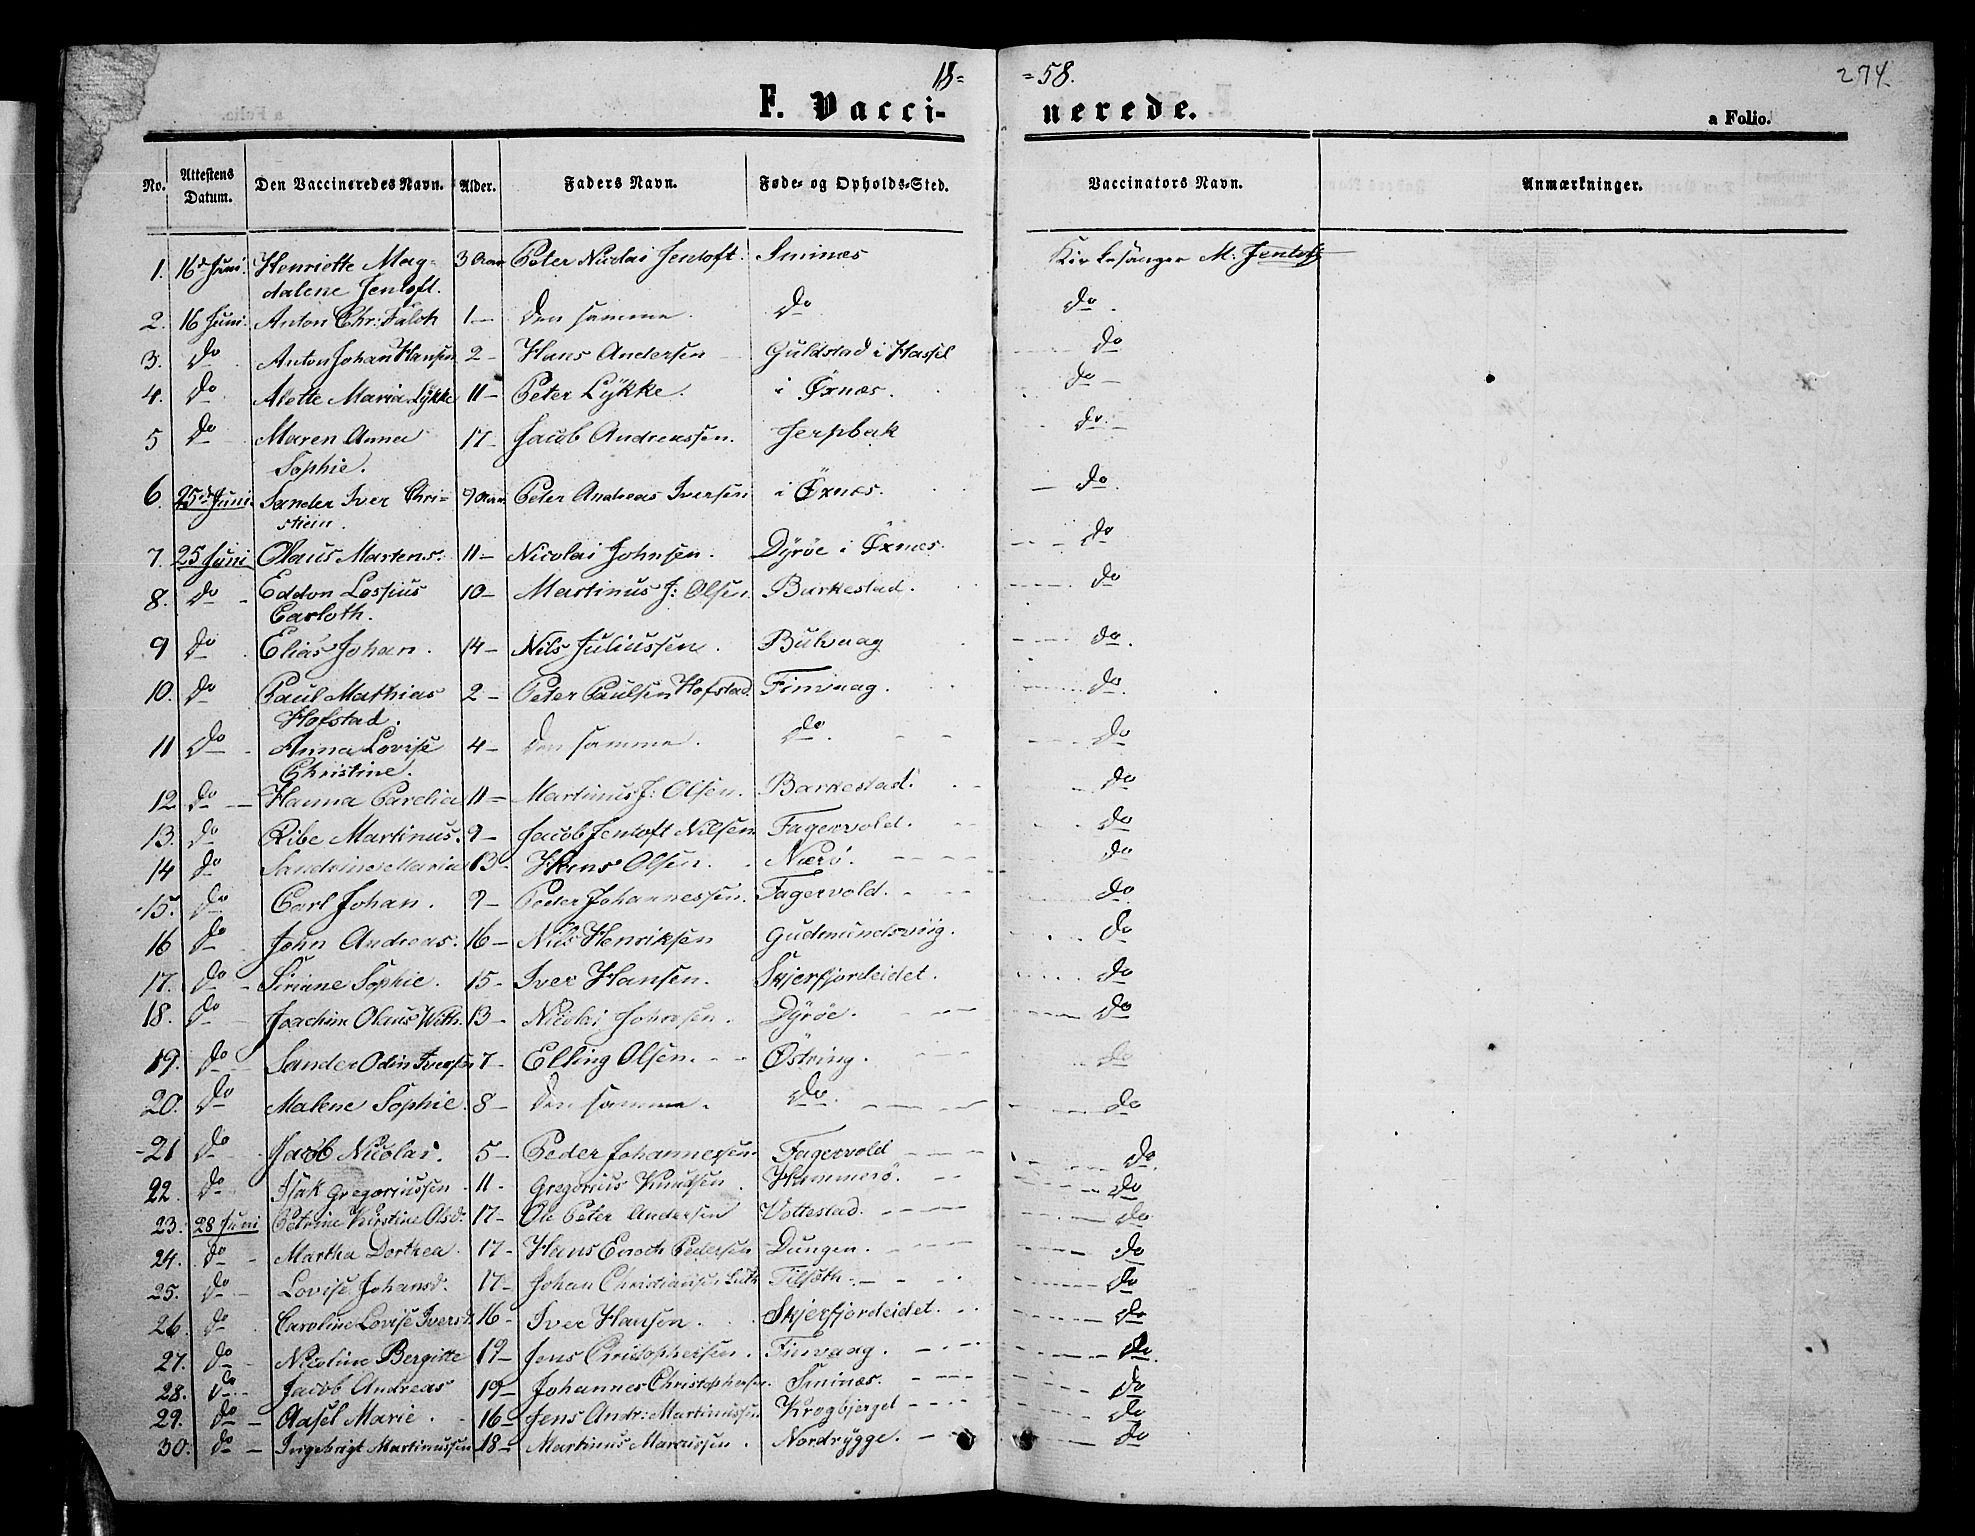 18= =58. 274.
F. Vacci- nerede. a Folio.
No. Attestens Datum. Den Vaccineredes Navn. Alder. Faders Navn. Føde- og Opholds-Sted. Vaccinators Navn. Anmærkninger.
1. 16d Juni Henriette Mag- 3 Aar Peter Nicolai Jentoft. Sminæs Kirkesanger M. Jentoft
dalene Jentoft.
2. 16 Juni. Anton Chr: Falch 1— Den samme. Do Do.
3. Do Anton Johan Hansen 2— Hans Andersen Guldstad i Hassel Do
4. Do Alette Maria Lykke 11— Peter Lykke. i Øxnæs. Do—
5 Do Maren Anna 17— Jacob Andreassen. Jerpbak Do.
Sophie.
6. 25d Juni. Sander Iver Chri- 9 Aar Peter Andreas Iversen i Øxnæs. Do.
stian.
7. 25 Juni Olaus Martens: 11— Nicolai Johnsen. Dyrøe i Øxnæs. Do
8. Do Eddon Lossius 10— Martinus J: Olsen Barkestad. Do
Carloth.
9 Do Elias Johan. 14— Nils Juliussen. Bulvaag Do.
10. Do Paul Mathias 2— Peter Paulsen Hofstad. Finvaag. Do.
Hofstad.
11 Do Anna Lovise 4— Den samme. Do. Do
Christine.
12 Do Hanna Parelia 11— Martinus J: Olsen. Barkestad. Do
13. Do Ribe Martinus. 9— Jacob Jentoft Nilsen Fagervold. Do
14 Do Sandrine Maria 13— Hans Olsen. Nærø. Do
15. Do Carl Johan. 9— Peder Johannessen. Fagervold. Do
16 Do John Andreas. 16— Nils Henriksen Gudmundsviig. Do
17. Do Siriane Sophie. 15— Iver Hansen. Skjerfjordeidet. Do
18. Do Joachim Olaus With. 13— Nicolai Johnsen. Dyrøe. Do
19. Do Sander Odin Iversen 7— Elling Olsen. Østring. Do
20. Do Malene Sophie. 8— Den samme. Do. Do
21 Do Jacob Nicolai. 5— Peder Johannessen. Fagervold Do.
22. Do Isak Gregoriussen 11. Gregorius Knudsen. Hammerø. Do
23. 28 Juni Petrine Kirstine Olsd. 17— Ole Peter Andersen Vottestad. Do
24. Do Martha Dorthea. 17— Hans Enoch Pedersen Dungen. Do
25. Do Lovise Johansd. 17— Johan Christiansen Tilseth. Do
26. Do Caroline Lovise Iversd. 16— Iver Hansen. Skjerfjordeidet. Do
27. Do Nicoline Bergitte 19— Jens Christophersen. Finvaag. Do.
28. Do Jacob Andreas 19— Johannes Christophersen. Sminæs. Do
29. Do Aasel Marie. 16— Jens Andr: Martinussen Krogbjerget Do
30. Do Ingebrigt Martinussen 18— Martinus Marcussen. Nordrygge. Do